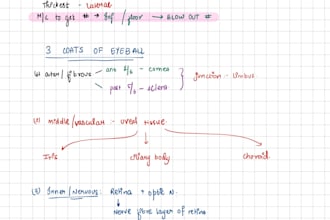 Thickest - Lateral
M/C to get # → Inf / floor → BLOW OUT #
3 COATS OF EYEBALL
outer / fibrous
ant 1/6 - cornea
post 5/6 - sclera
junction - limbus
Middle / vascular - uvea
Iris
ciliary body
choroid
Inner / Nervous : Retina + optic N.
Nerve fibre layer of retina